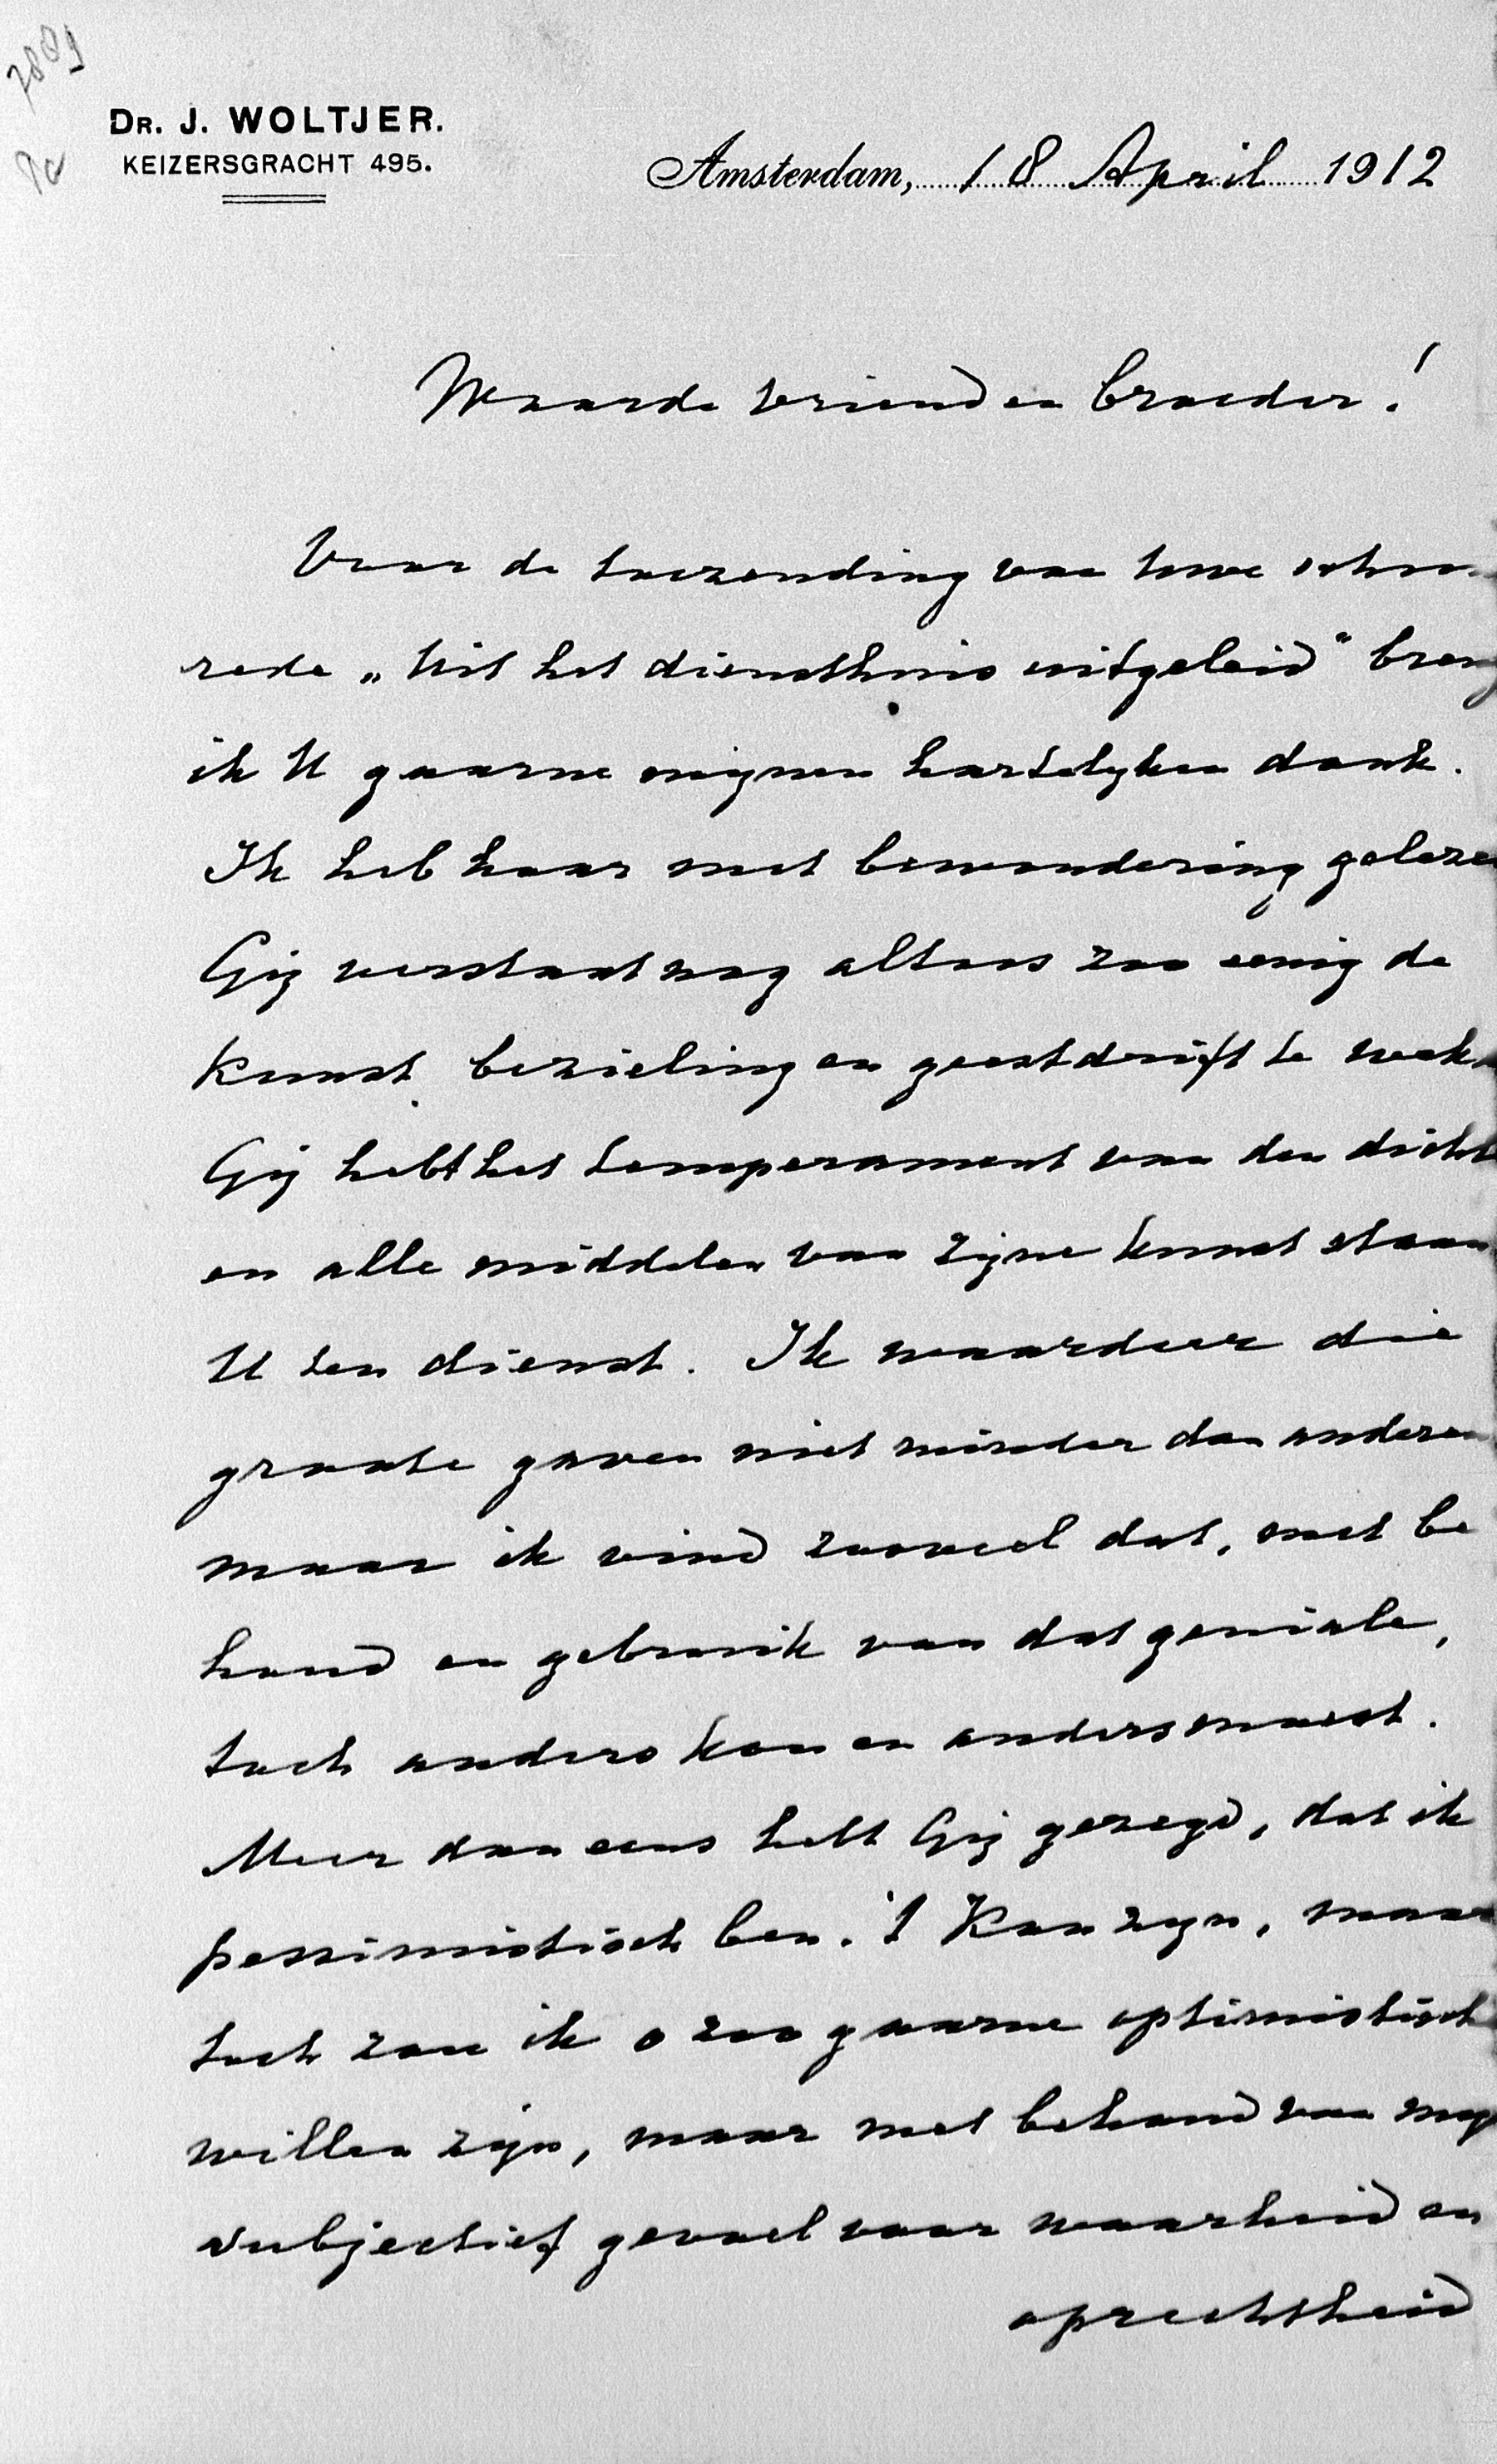 7809
DR. J. WOLTJER.
KEIZERSGRACHT 495.
Amsterdam, 18 April 1912
Waarde vriend en broeder!
Voor de toezending van Uwe schoo
rede „Uit het diensthuis uitgeleid" breng
ik U gaarne mijnen hartelyken dank.
Ik heb haar met bewondering geleze
Gij verstaat nog altoos zoo eenig de
kunst bezieling en geestdrift te wek
Gij hebt het temperament van den dicht
en alle middelen van zijne kunst staan
U ten dienst. Ik waardeer die
groote gaven niet minder dan anderen
maar ik vind zooveel dat, met be
houd en gebruik van dat geniale,
toch anders kon en anders moest.
Meer dan eens hebt Gij gezegd, dat ik
pessimistisch ben. 't Kan zyn, maar
toch zou ik o zoo gaarne optimistisch
willen zijn, maar met behoud van myn
subjectief gevoel voor waarheid en
oprechtheid